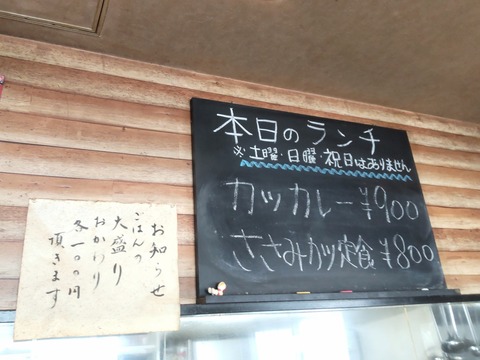 本日のランチ
※土曜・日曜・祝日はありません
カツカレー¥900
ささみカツ定食¥800
お知らせ
ごはんの
大盛り
おかわり
各一〇〇円
頂きます